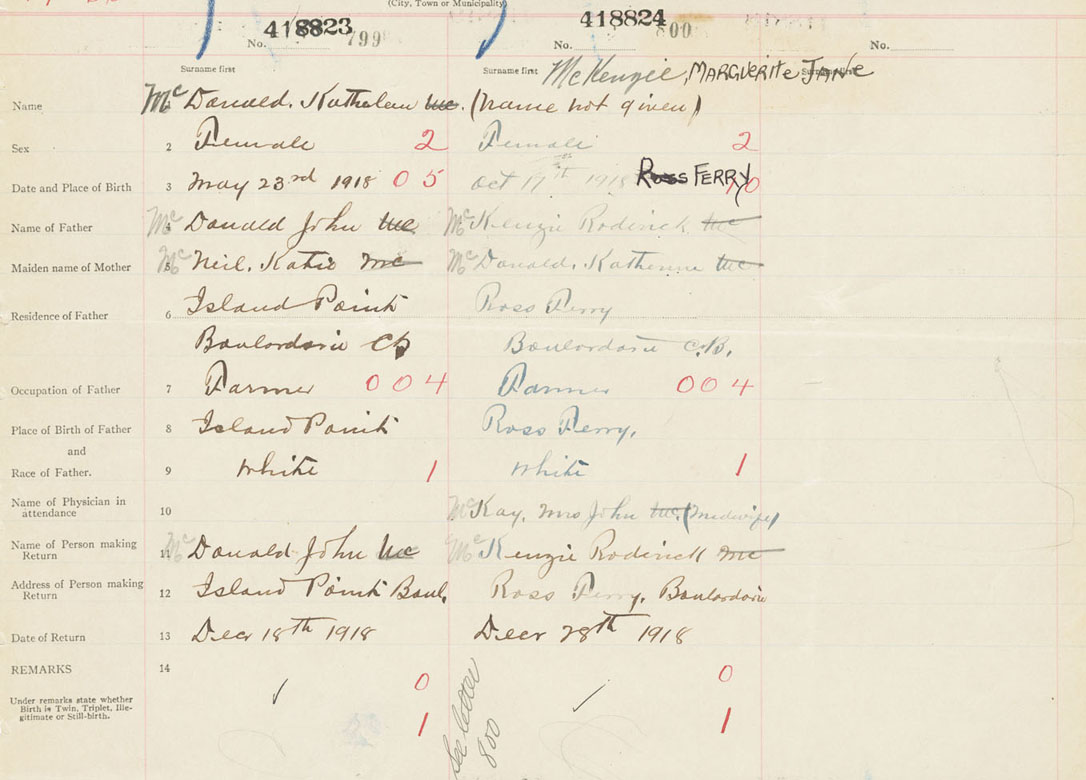 (City, Town or Municipality)
418823
No. 799
418824
No. 800
No.
Surname first
Surname first McKenzie, MARGUERITE JANE
Name Mc Donald. Kathaleen Mc. (name not given)
Sex 2 Female 2 Female 2
Date and Place of Birth 3 May 23rd 1918 05 Oct 17th 1918 Ross FERRY 10
Name of Father 4 Mc Donald John Mc Mc Kenzie Roderick Mc
Maiden name of Mother 5 Mc Neil. Katie Mc Mc Donald. Katherine Mc
Residence of Father 6 Island Point Ross Ferry
Boulardarie CB Boulardarie C.B.
Occupation of Father 7 Farmer 004 Farmer 004
Place of Birth of Father 8 Island Point Ross Ferry.
and
Race of Father. 9 White 1 White 1
Name of Physician in
attendance 10 Mc Kay, Mrs John Mc. (Midwife)
Name of Person making
Return 11 Mc Donald John Mc Mc Kenzie Roderick Mc
Address of Person making
Return 12 Island Point Boul. Ross Ferry, Boulardarie
Date of Return 13 Decr 18th 1918 Decr 28th 1918
REMARKS 14
0 0
Under remarks state whether
Birth is Twin, Triplet, Ille-
gitimate or Still-birth.
1 1
See letter
800